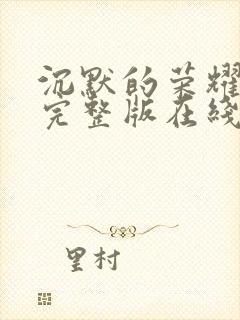 沉默的荣耀
完整版在线
里村